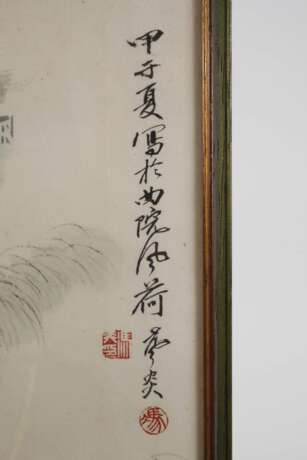 甲子夏寫於曲院風荷 炎
馮